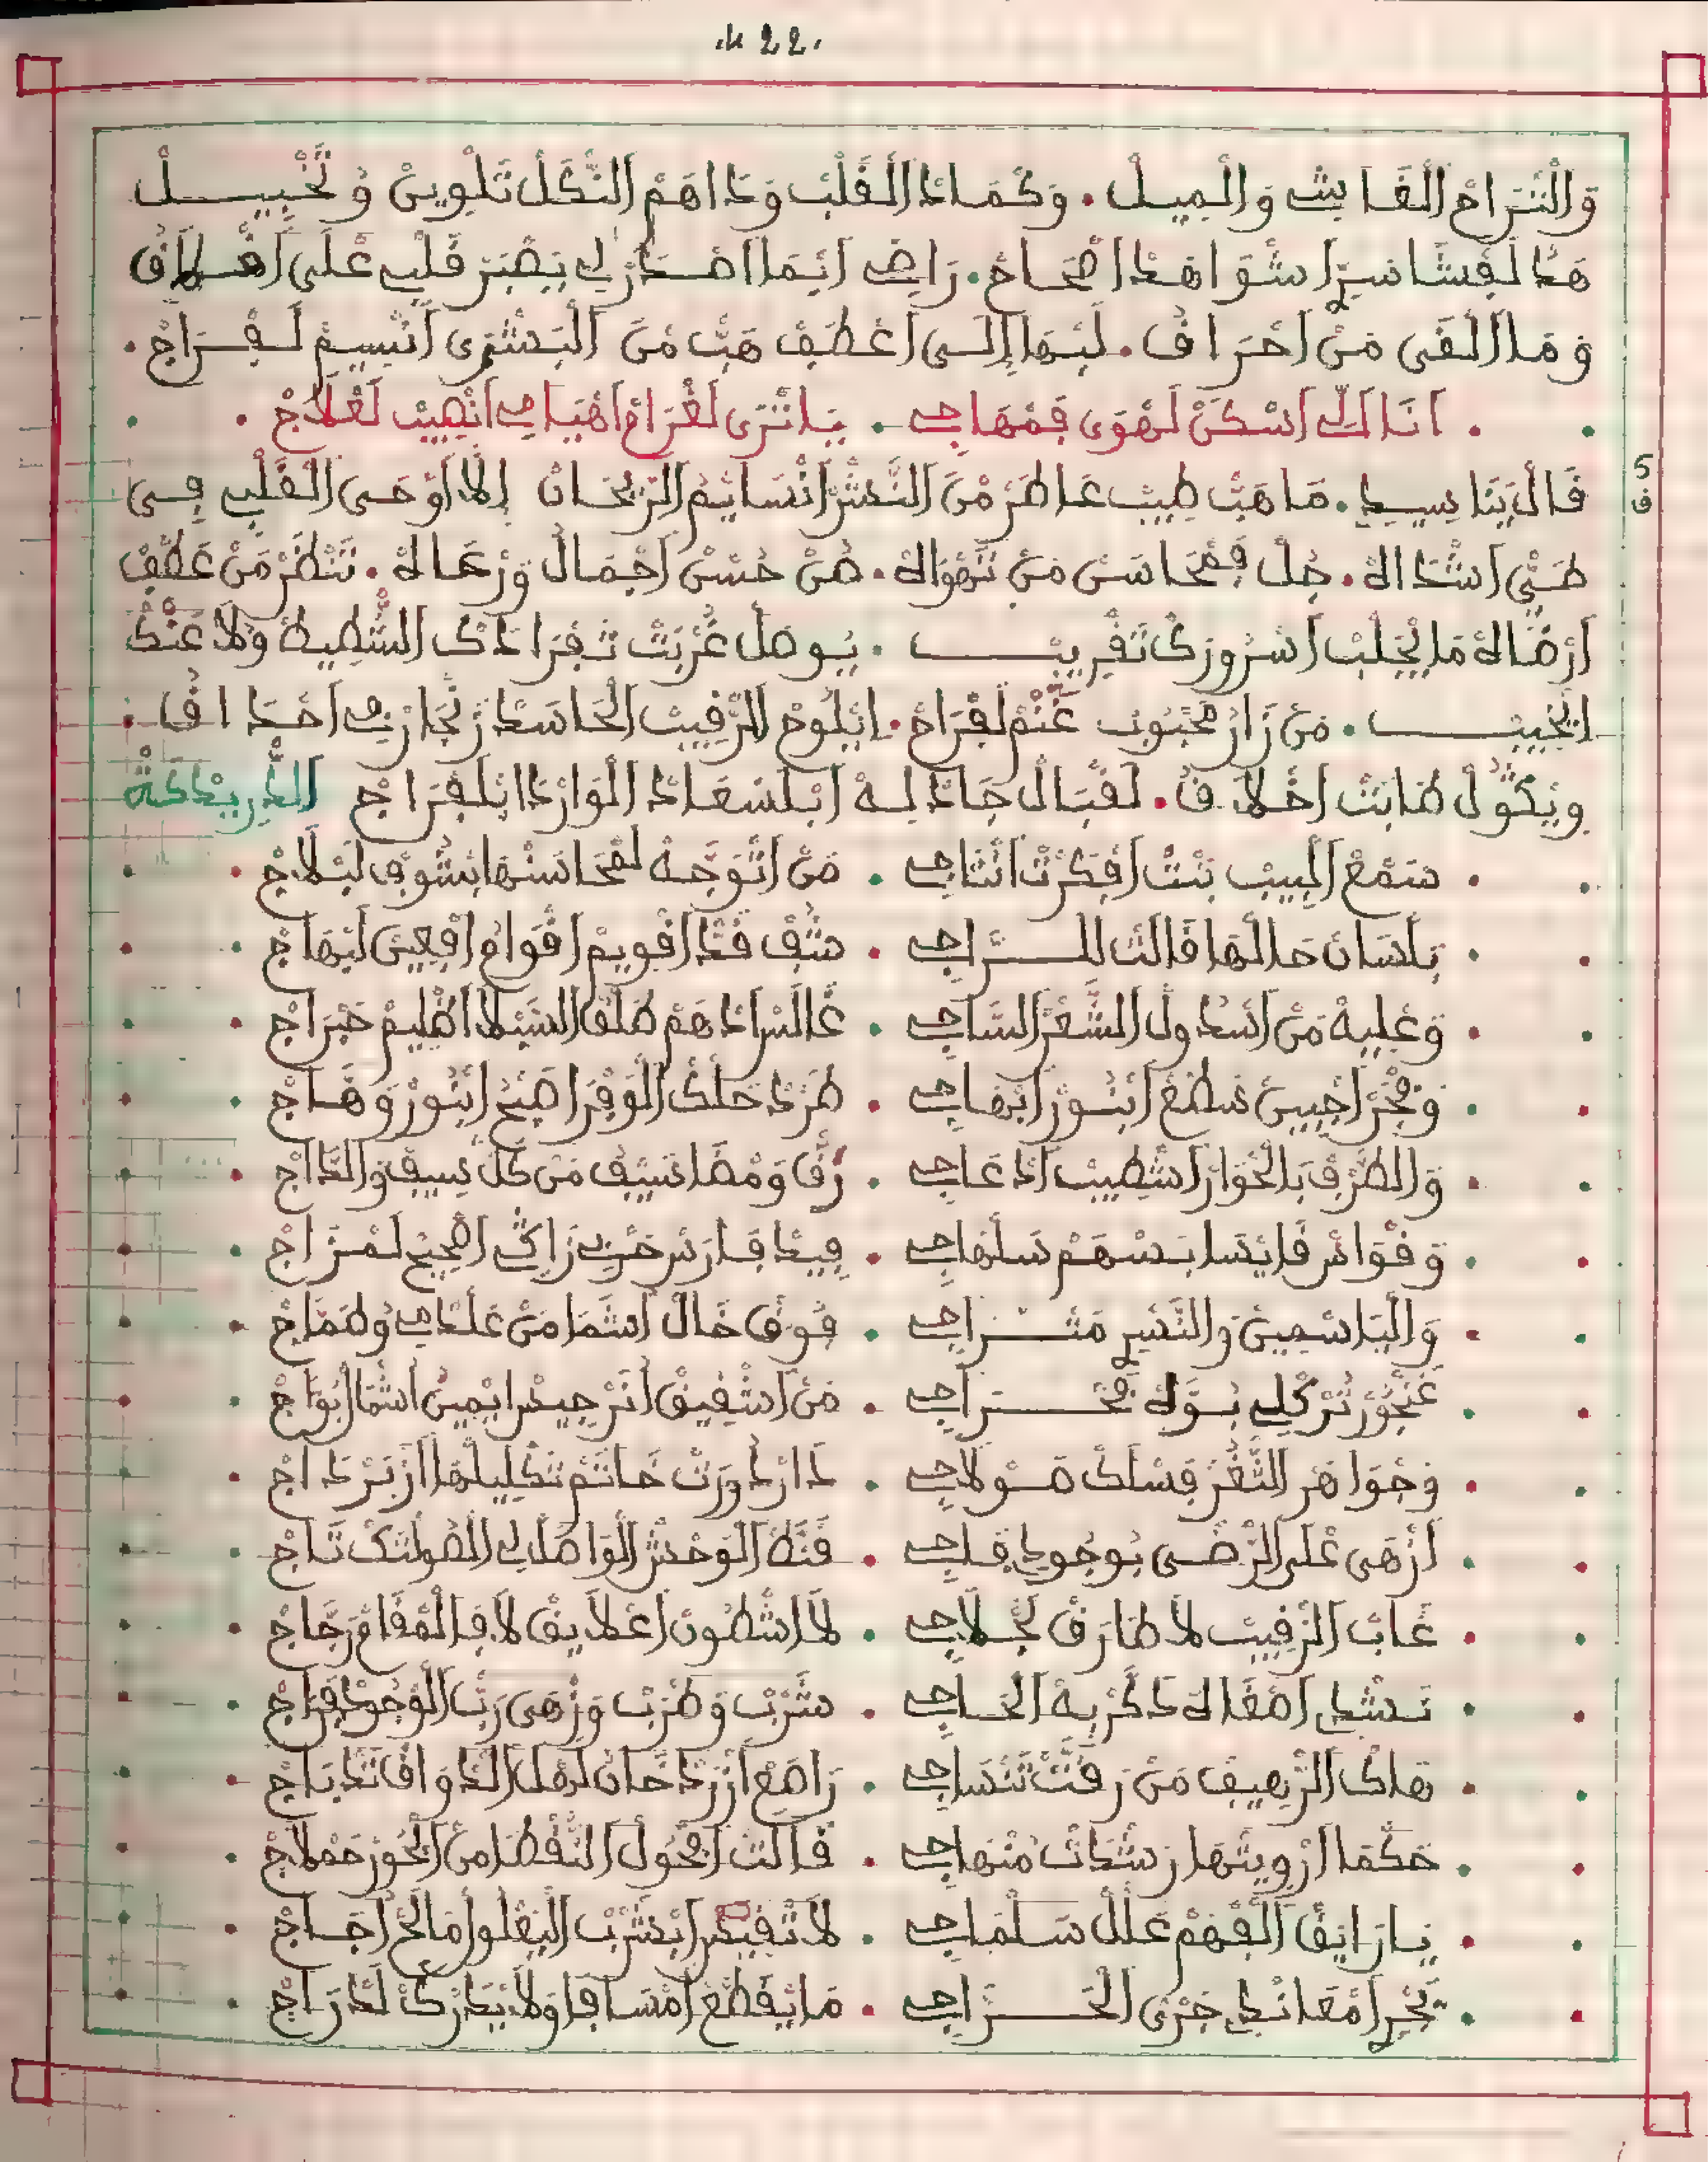 22
وَالتَّرَاحْ الْفَايَتْ وَالْمِيلْ. وَكْمَادْ الْقَلْبْ وَدَاهَمْ النَّكَلْ تَلْوِينْ وُتَخْيِيلْ
هَذَا لَفْشَا سِيرْ اشْوَاهَدْ اصْحَاحْ. رَاضِي ايَمَا اصْدَرْ لِي يَصْبَرْ قَلْبِي عْلَى
وَمَا الْقَى مَنْ احْرَافْ. لَبْهَا إِلَى اعْطَفْ هَبْ مَنْ الْبَشْرَى انْسِيمْ لَفْرَاجْ.
. انَا الِّي اسْكَنْ لَهْوَى فَمْهَاجِي . يَا تْرَى لَغْرَامْ اهْيَاجِي انْصِيبْ لَعْلَاجْ .
5
ف
قَالْ يَا سِيدِي. مَا هَبْ طِيبْ عَاطَرْ مْنَ النَّشْرْ انْسَايَمْ الرِّيحَانْ إِلَّا اوْحَى الْقَلْبْ فِي
طَيّْ اشْدَاهْ. جُلْ فَمْحَاسَنْ مَنْ تَهْوَاهْ. مَنْ حُسْنْ اجْمَالْ وَرْعَاهْ. تَنْظَرْ مَنْ عَطْفْ
ارْضَاهْ مَا يَجْلَبْ اسْرُورَكْ تَقْرِيبْ . يُوصَلْ غُرْبَتْ الشْطِيطْ وَلَا عَنْدْ
الْحْبِيبْ . مَنْ زَارْ مَحْبُوبْ غَنَّمْ لَفْرَاحْ. ايْلُوحْ الرْقِيبْ الْحَاسَدْ
وِيكُولْ طَابَتْ اخْلَاقْ. لَقْبَالْ جَادْ لِهْ ابْلَسْعَادْ الْوَارَدْ ابْلَفْرَاجْ الدْرِيدْكَةْ
. سَمْعْ الْبِيبْ بَنْتْ افْكَرْتْ انْتَاجِي . مَنْ اتْوَجَّهْ لَمْحَاسَنْهَا بَشُّوفْ لَبْلَاجْ .
. بَلْسَانْ حَالْهَا قَالَتْ لَلرَّاجِي . شُفْ قَدْ اقْوِيمْ اقْوَامْ افْعِينْ لَبْهَاجْ .
. وَعْلِيهْ مَنْ اسْدُولْ الشْعَرْ السَّاجِي . غَالَسْ ادْهَمْ طَلْقْ السِّيلَا اظْلِيمْ جَرَّاجْ .
. وَفْجَرْ اجْبِينْ سْطَعْ ابْنُورْ ابْهَاجِي . طَرْدْ حَلْكْ الْوَفْرَا صَبْحْ ابْنُورْ وَهَّاجْ .
. وَالطَّرْفْ بَالْحْوَارْ اشْطِيبْ ادْعَاجِي . رَقْ وَمْضَا سِيفْ مَنْ كَلْ سِيفْ وَالدَّاجْ .
. وَقْوَاسْ قَايْسَا بَسْهَمْ سَلْهَاجِي . فِيدْ فَارَسْ حَرْبِي زَاكِي اصْحِيحْ لَمْزَاجْ .
. وَالْيَاسْمِينْ وَالنَّسْرِي مَتْرَاجِي . فُوقْ خَالْ اسْمَا مَنْ عَلْدَاجِي وُطَمَّاجْ .
. غَنْجُورْ تُرْكْلِي بُوَلْهْ مَخْرَاجِي . مَنْ اشْفِيقْ انْرَجِيسْ ايْمِينْ اشْمَالْ بُوَّاجْ .
. وَجْوَاهَرْ الثْغَرْ فَسْلَكْ صَوْلَاجِي . دَارْ دَوْرَتْ خَاتَمْ تَكْلِيلْهَا ازْبَرْدَاجْ .
. ازْهَى عْلَى الرّْضَى بُوجُودِي فَاجِي . فَنَّطْ الْوَحْشْ الْوَاصَلْ لِي الصُولْتَكْ تَاجْ .
. غَابْ الرْقِيبْ لَا طَارَقْ لَجْلَاجِي . لَا اشْطُونْ اعْلَايَقْ لَا فَالْمْقَامْ رَجَّاجْ .
. نَشْدِي امْقَالَهْ دَكْرَبَهْ الْحَاجِي . شْرَبْ وَطْرَبْ وَزْهَى رَبْ الْوْجُودْ فَرَّاجْ .
. هَاكْ الرْهِيفْ مَنْ رَقَّتْ تَنْسَاجِي . رَاصَعْ ازَرْدْخَانْ لَهْلْ الدْوَاقْ تَدْبَاجْ .
. حَكْمَا ارْوِيتْهَا رَشْدَاتْ مَنْهَاجِي . قَالَتْ افْحُولْ النْقْطَا مَنْ الْحُورْ حَمْلَاجْ .
. يَا رَايَقْ الْفْهَمْ عَلَلْ سَلْمَاجِي . لَا تْفِيسْ ابْشَرْبْ الْبَغْلُو امَالَحْ اجَاجْ .
. بَحْرْ امْعَانْدِي جَرْى الْخَرَّاجِي . مَا يَقْطَعْ امْسَافَا وَلَا يَدْرَكْ لَدْرَاجْ .